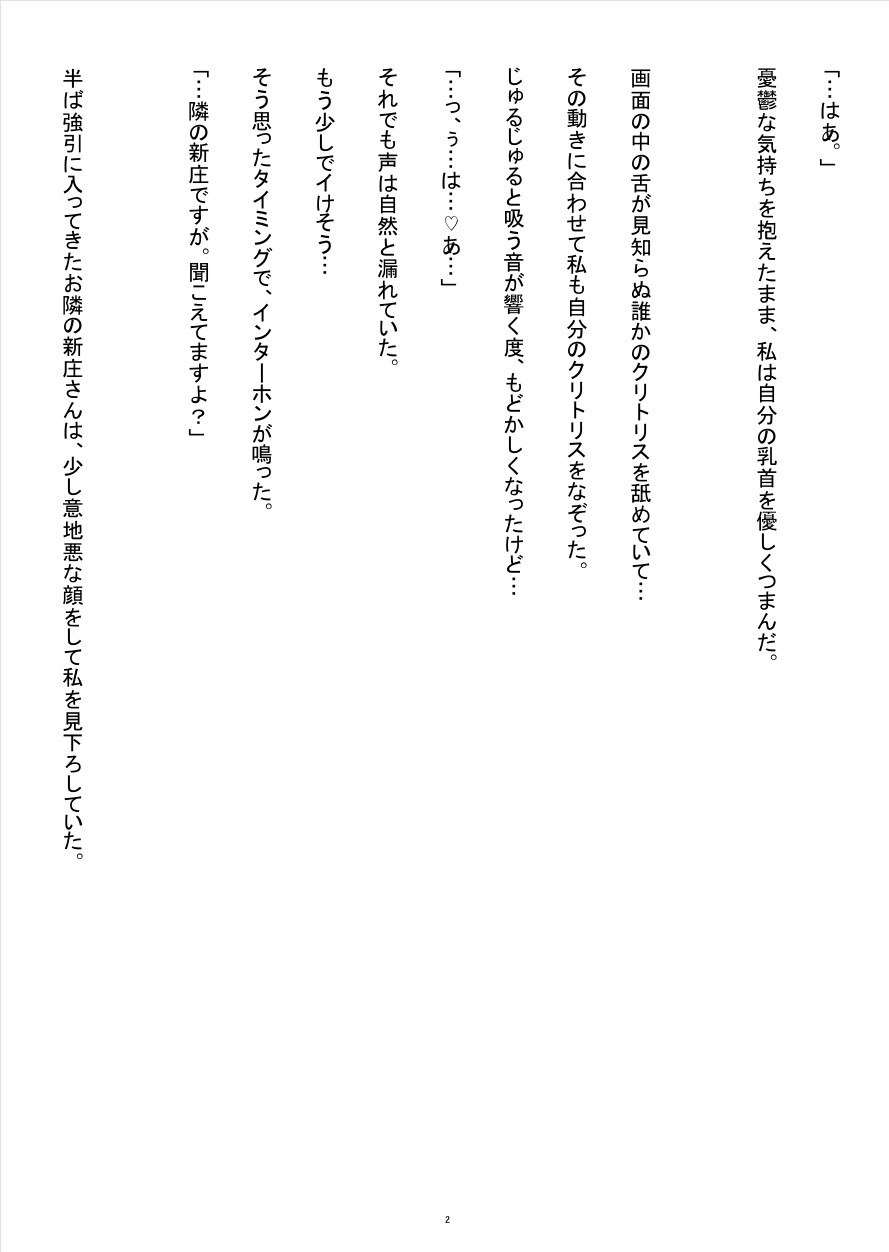 「…はあ。」
憂鬱な気持ちを抱えたまま、私は自分の乳首を優しくつまんだ。
画面の中の舌が見知らぬ誰かのクリトリスを舐めていて…
その動きに合わせて私も自分のクリトリスをなぞった。
じゅるじゅると吸う音が響く度、もどかしくなったけど…
「…っ、ぅ…は…♡あ…」
それでも声は自然と漏れていた。
もう少しでイけそう…
そう思ったタイミングで、インターホンが鳴った。
「…隣の新庄ですが。聞こえてますよ？」
半ば強引に入ってきたお隣の新庄さんは、少し意地悪な顔をして私を見下ろしていた。
2